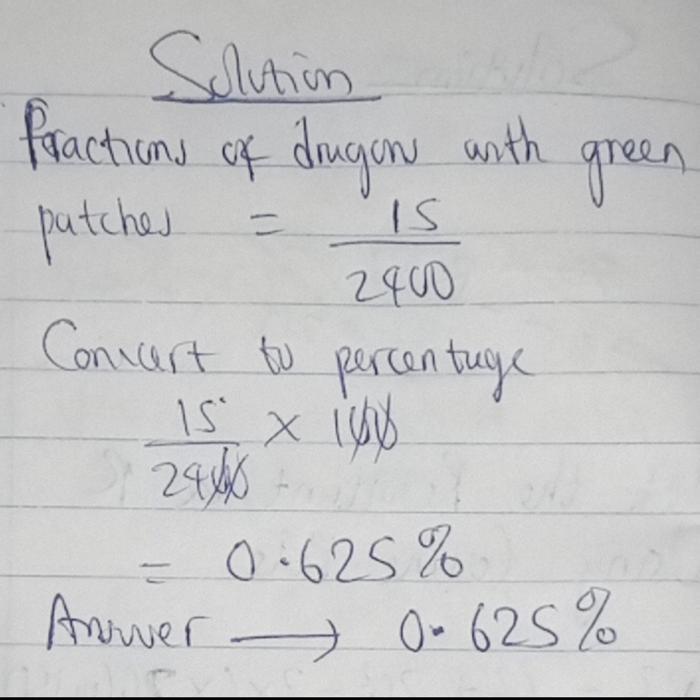 Solution
fractions of dragons with green
patches = 15/2400
Convert to percentage
15/2400 × 100
= 0.625%
Answer → 0.625%